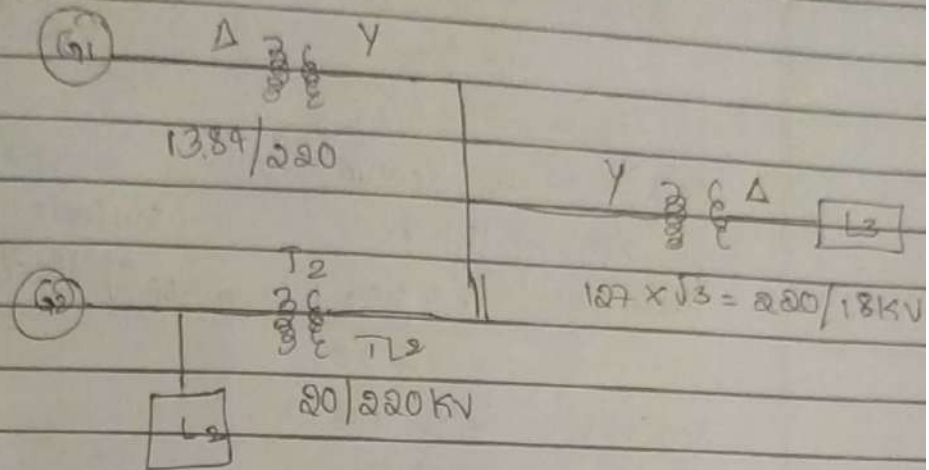 G1 Δ Y
13.84/220
Y Δ L3
127 × √3 = 220/18KV
G2 T2
TL2
20/220KV
L2